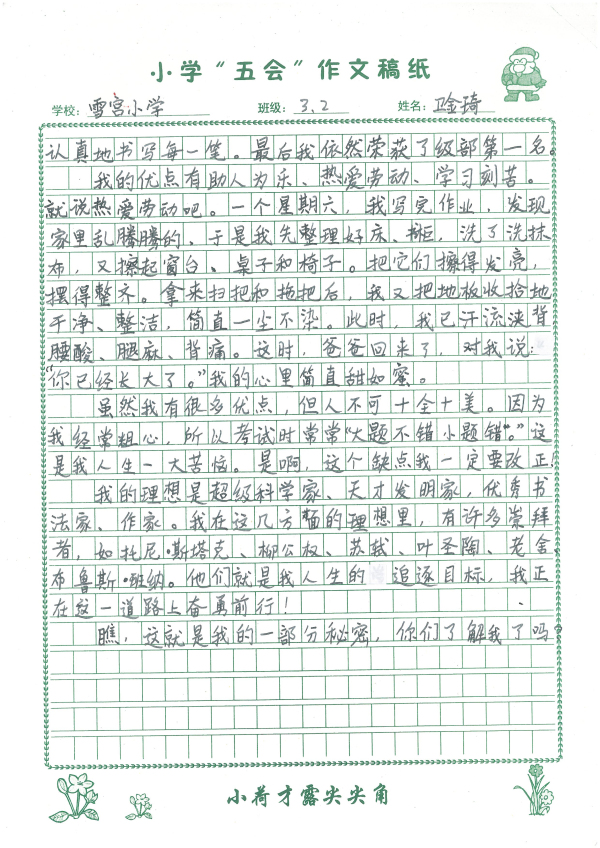 小学“五会”作文稿纸
学校：雪宫小学 班级：3.2 姓名：卫金琦
认真地书写每一笔。最后我依然荣获了级部第一名。
我的优点有助人为乐、热爱劳动、学习刻苦。
就说热爱劳动吧。一个星期六，我写完作业，发现
家里乱腾腾的、于是我先整理好床、柜，洗了洗抹
布，又擦起窗台、桌子和椅子。把它们擦得发亮，
摆得整齐。拿来扫把和拖把后，我又把地板收拾地
干净、整洁，简直一尘不染。此时，我已汗流浃背
腰酸、腿麻、背痛。这时，爸爸回来了，对我说：
“你已经长大了。”我的心里简直甜如蜜。
虽然我有很多优点，但人不可十全十美。因为
我经常粗心，所以考试时常常“大题不错小题错”。这
是我人生一大苦恼。是啊，这个缺点我一定要改正！
我的理想是超级科学家、天才发明家，优秀书
法家、作家。我在这几方面的理想里，有许多崇拜
者，如托尼·斯塔克、柳公权、苏轼、叶圣陶、老舍、
布鲁斯·班纳。他们就是我人生的追逐目标，我正
在这一道路上奋勇前行！
瞧，这就是我的一部分秘密，你们了解我了吗？
小荷才露尖尖角